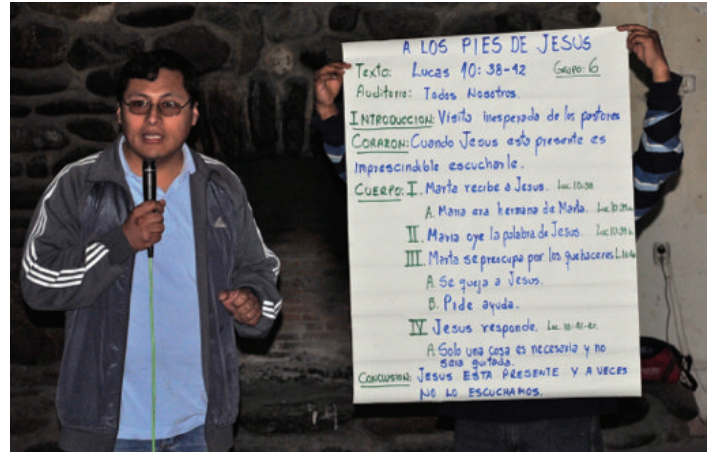 A LOS PIES DE JESUS
Texto: Lucas 10:38-42 GRUPO: 6
Auditorio: Todos Nosotros.
INTRODUCCION: Visita inesperada de los pastores
CORAZON: Cuando Jesus esta presente es
imprescindible escucharle.
CUERPO: I. Marta recibe a Jesus. Luc 10:38
A. Maria era hermana de Marta. Luc 10:39a.
II. Maria oye la palabra de Jesus. Luc 10:39 b.
III. Marta se preocupa por los quehaceres
A. Se queja a Jesus.
B. Pide ayuda.
IV Jesus responde. Luc 10:41-42.
A. Solo una cosa es necesaria y no
sera quitada.
CONCLUSION: JESUS ESTA PRESENTE Y A VECES
NO LO ESCUCHAMOS.